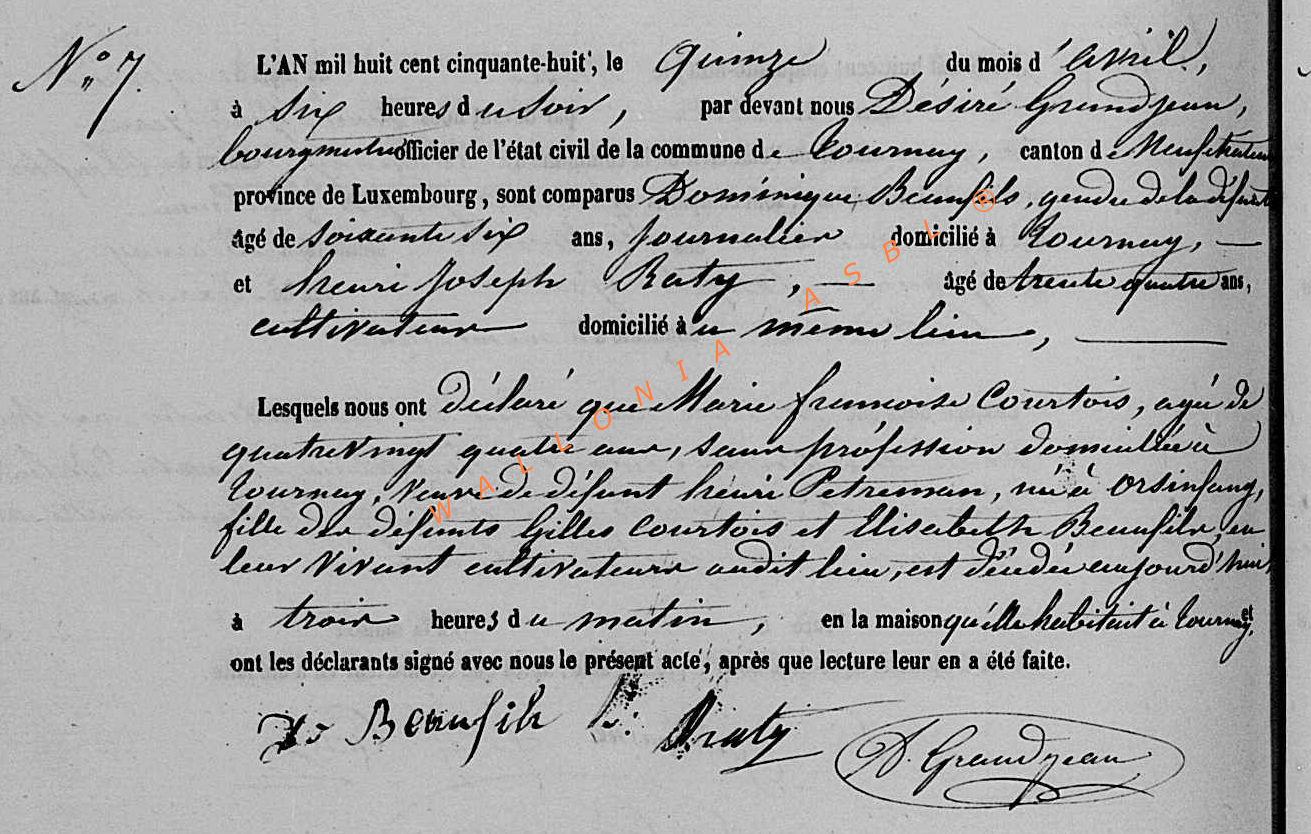 N° 7.
L'AN mil huit cent cinquante-huit, le quinze du mois d'avril,
à six heures du soir, par devant nous Désiré Grandjean,
bourgmestre officier de l'état civil de la commune de Tournay, canton de Neufchateau
province de Luxembourg, sont comparus Dominique Beaufils, gendre de la défunte
âgé de soixante six ans, journalier domicilié à Tournay,
et henri joseph Raty, âgé de trente quatre ans,
cultivateur domicilié à u même lieu,
Lesquels nous ont déclaré que Marie françoise Courtois, agée de
quatrevingt quatre ans, sans profession domiciliée à
Tournay, veuve de défunt henri Petreman, née à Orsinfang,
fille des défunts Gilles Courtois et Elisabeth Beaufils, en
leur vivant cultivateurs audit lieu, est décédée aujourd'hui
à trois heures du matin, en la maison qu'elle habitait à Tournay, et
ont les déclarants signé avec nous le présent acte, après que lecture leur en a été faite.
Beaufils Raty D. Grandjean
WALLONIA ASBL ®